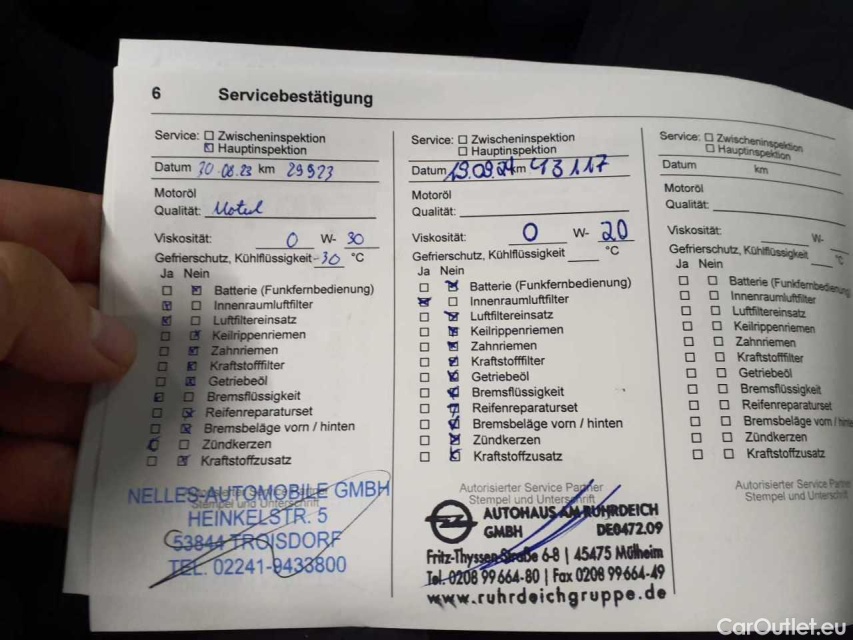 6 Servicebestätigung
Service: Zwischeninspektion
Hauptinspektion
Datum 30.08.23 km 29923
Motoröl
Qualität: Motul
Viskosität: 0 W- 30
Gefrierschutz, Kühlflüssigkeit -30 °C
Ja Nein
Batterie (Funkfernbedienung)
Innenraumluftfilter
Luftfiltereinsatz
Keilrippenriemen
Zahnriemen
Kraftstofffilter
Getriebeöl
Bremsflüssigkeit
Reifenreparaturset
Bremsbeläge vorn / hinten
Zündkerzen
Kraftstoffzusatz
Stempel und Unterschrift
NELLES AUTOMOBILE GMBH
HEINKELSTR. 5
53844 TROISDORF
TEL. 02241-9433800
Service: Zwischeninspektion
Hauptinspektion
Datum 19.09.24 km 43117
Motoröl
Qualität:
Viskosität: 0 W- 20
Gefrierschutz, Kühlflüssigkeit °C
Ja Nein
Batterie (Funkfernbedienung)
Innenraumluftfilter
Luftfiltereinsatz
Keilrippenriemen
Zahnriemen
Kraftstofffilter
Getriebeöl
Bremsflüssigkeit
Reifenreparaturset
Bremsbeläge vorn / hinten
Zündkerzen
Kraftstoffzusatz
Autorisierter Service Partner
Stempel und Unterschrift
AUTOHAUS AM RUHRDEICH
GMBH DE0472.09
Fritz-Thyssen-Straße 6-8 | 45475 Mülheim
Tel. 0208 99 664-80 | Fax 0208 99 664-49
www.ruhrdeichgruppe.de
Service: Zwischeninspektion
Hauptinspektion
Datum km
Motoröl
Qualität:
Viskosität: W-
Gefrierschutz, Kühlflüssigkeit °C
Ja Nein
Batterie (Funkfernbedienung
Innenraumluftfilter
Luftfiltereinsatz
Keilrippenriemen
Zahnriemen
Kraftstofffilter
Getriebeöl
Bremsflüssigkeit
Reifenreparaturset
Bremsbeläge vorn / hinte
Zündkerzen
Kraftstoffzusatz
Autorisierter Service Partne
Stempel und Unterschrift
CarOutlet.eu